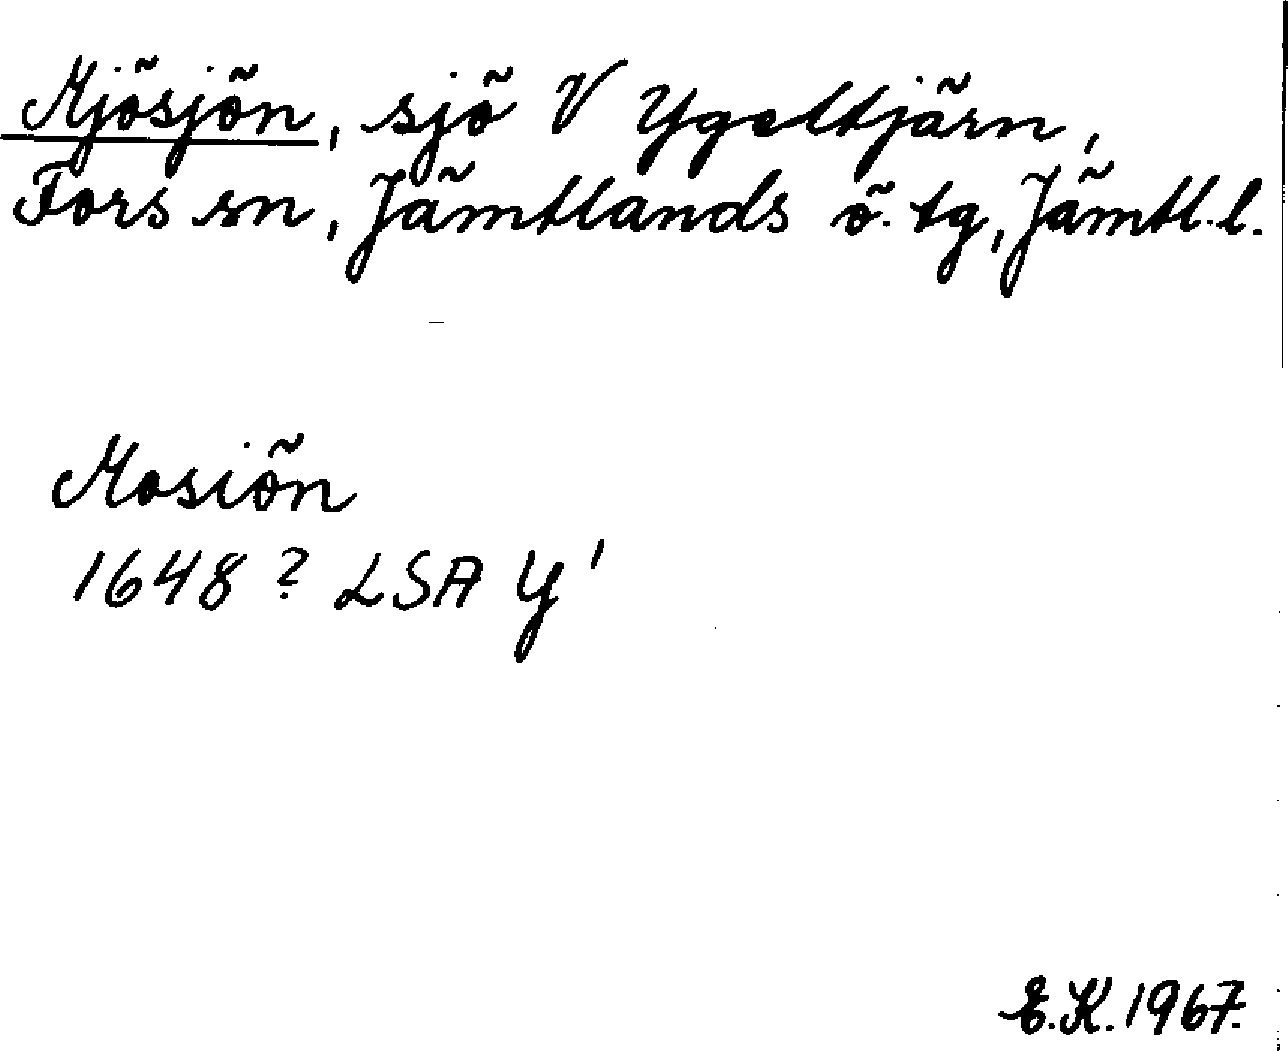 Mjösjön, sjö V Ygeltjärn,
Fors sn, Jämtlands ö. tg, Jämtl. l.
Mosiön
1648? LSA Y'
E.K. 1967.